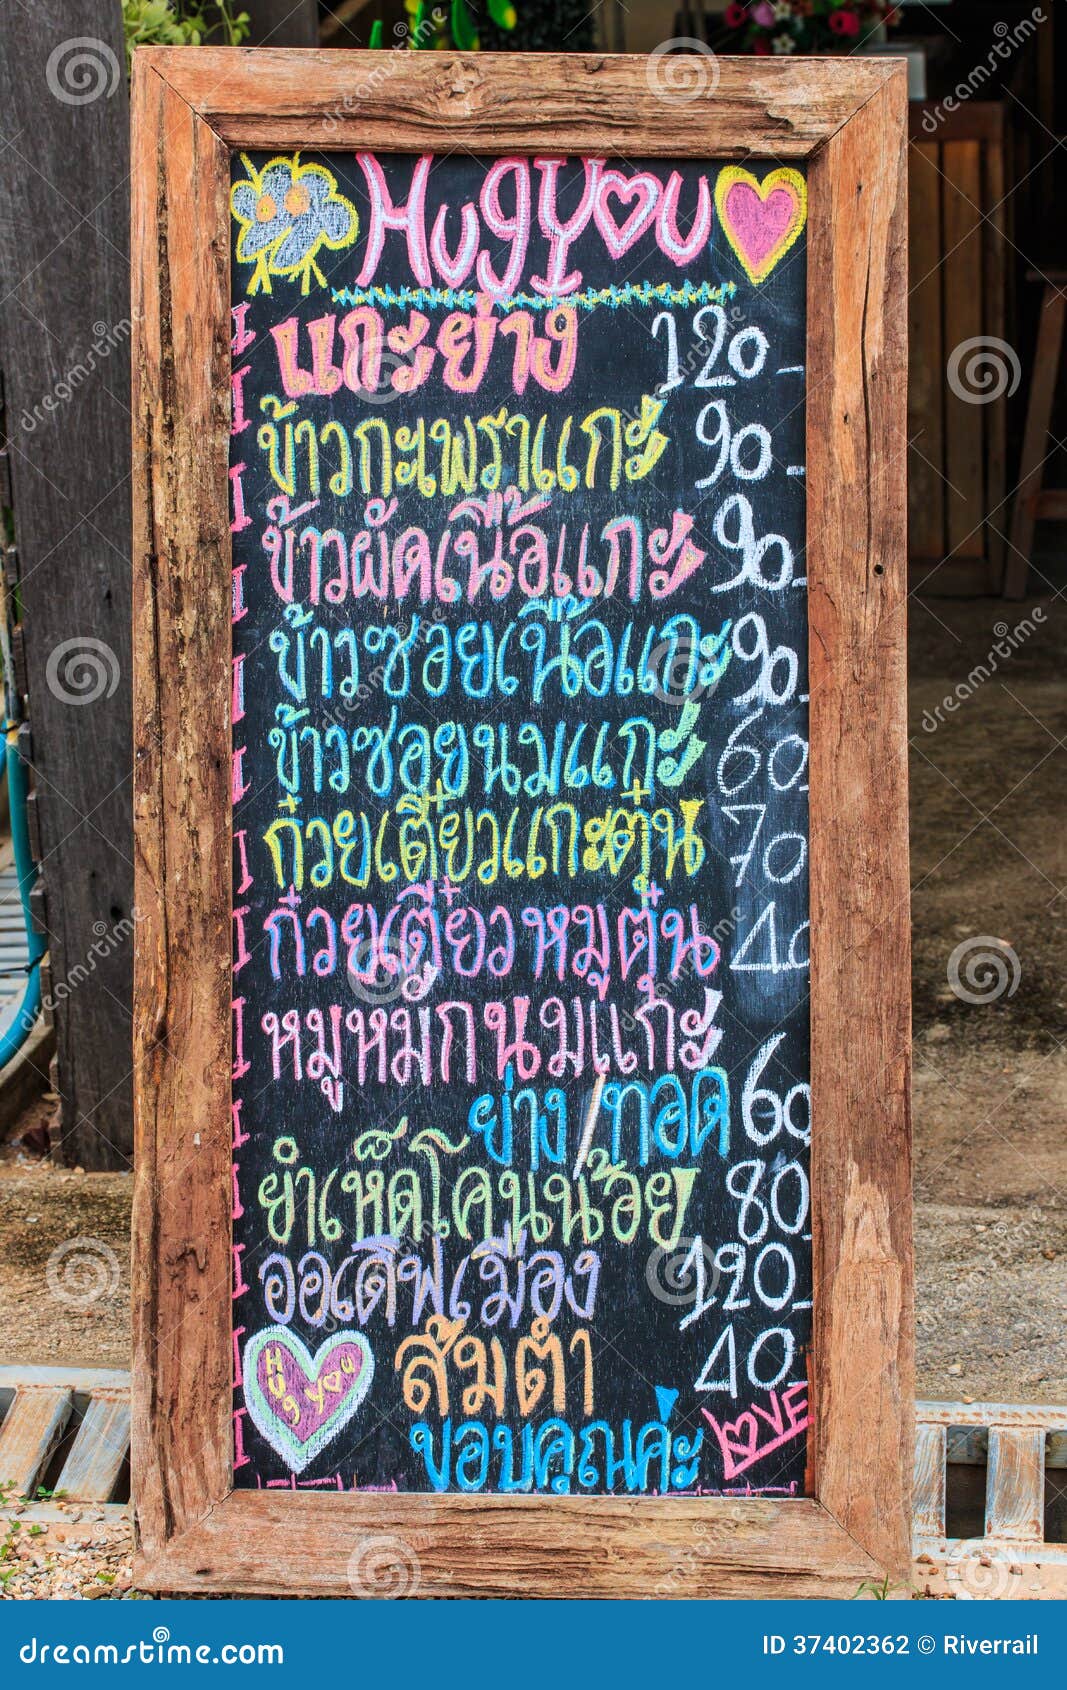 Hug You
แกะย่าง 120-
ข้าวกะเพราแกะ 90-
ข้าวผัดเนื้อแกะ 90-
ข้าวซอยเนื้อแกะ 90-
ข้าวซอยนมแกะ 60
ก๋วยเตี๋ยวแกะตุ๋น 70
ก๋วยเตี๋ยวหมูตุ๋น 40
หมูหมักนมแกะ
ย่าง/ทอด 60
ยำเห็ดโคนน้อย 80
ออเดิฟเมือง 120-
ส้มตำ 40-
Hug You
ขอบคุณค่ะ LOVE
dreamstime.com
ID 37402362 © Riverrail